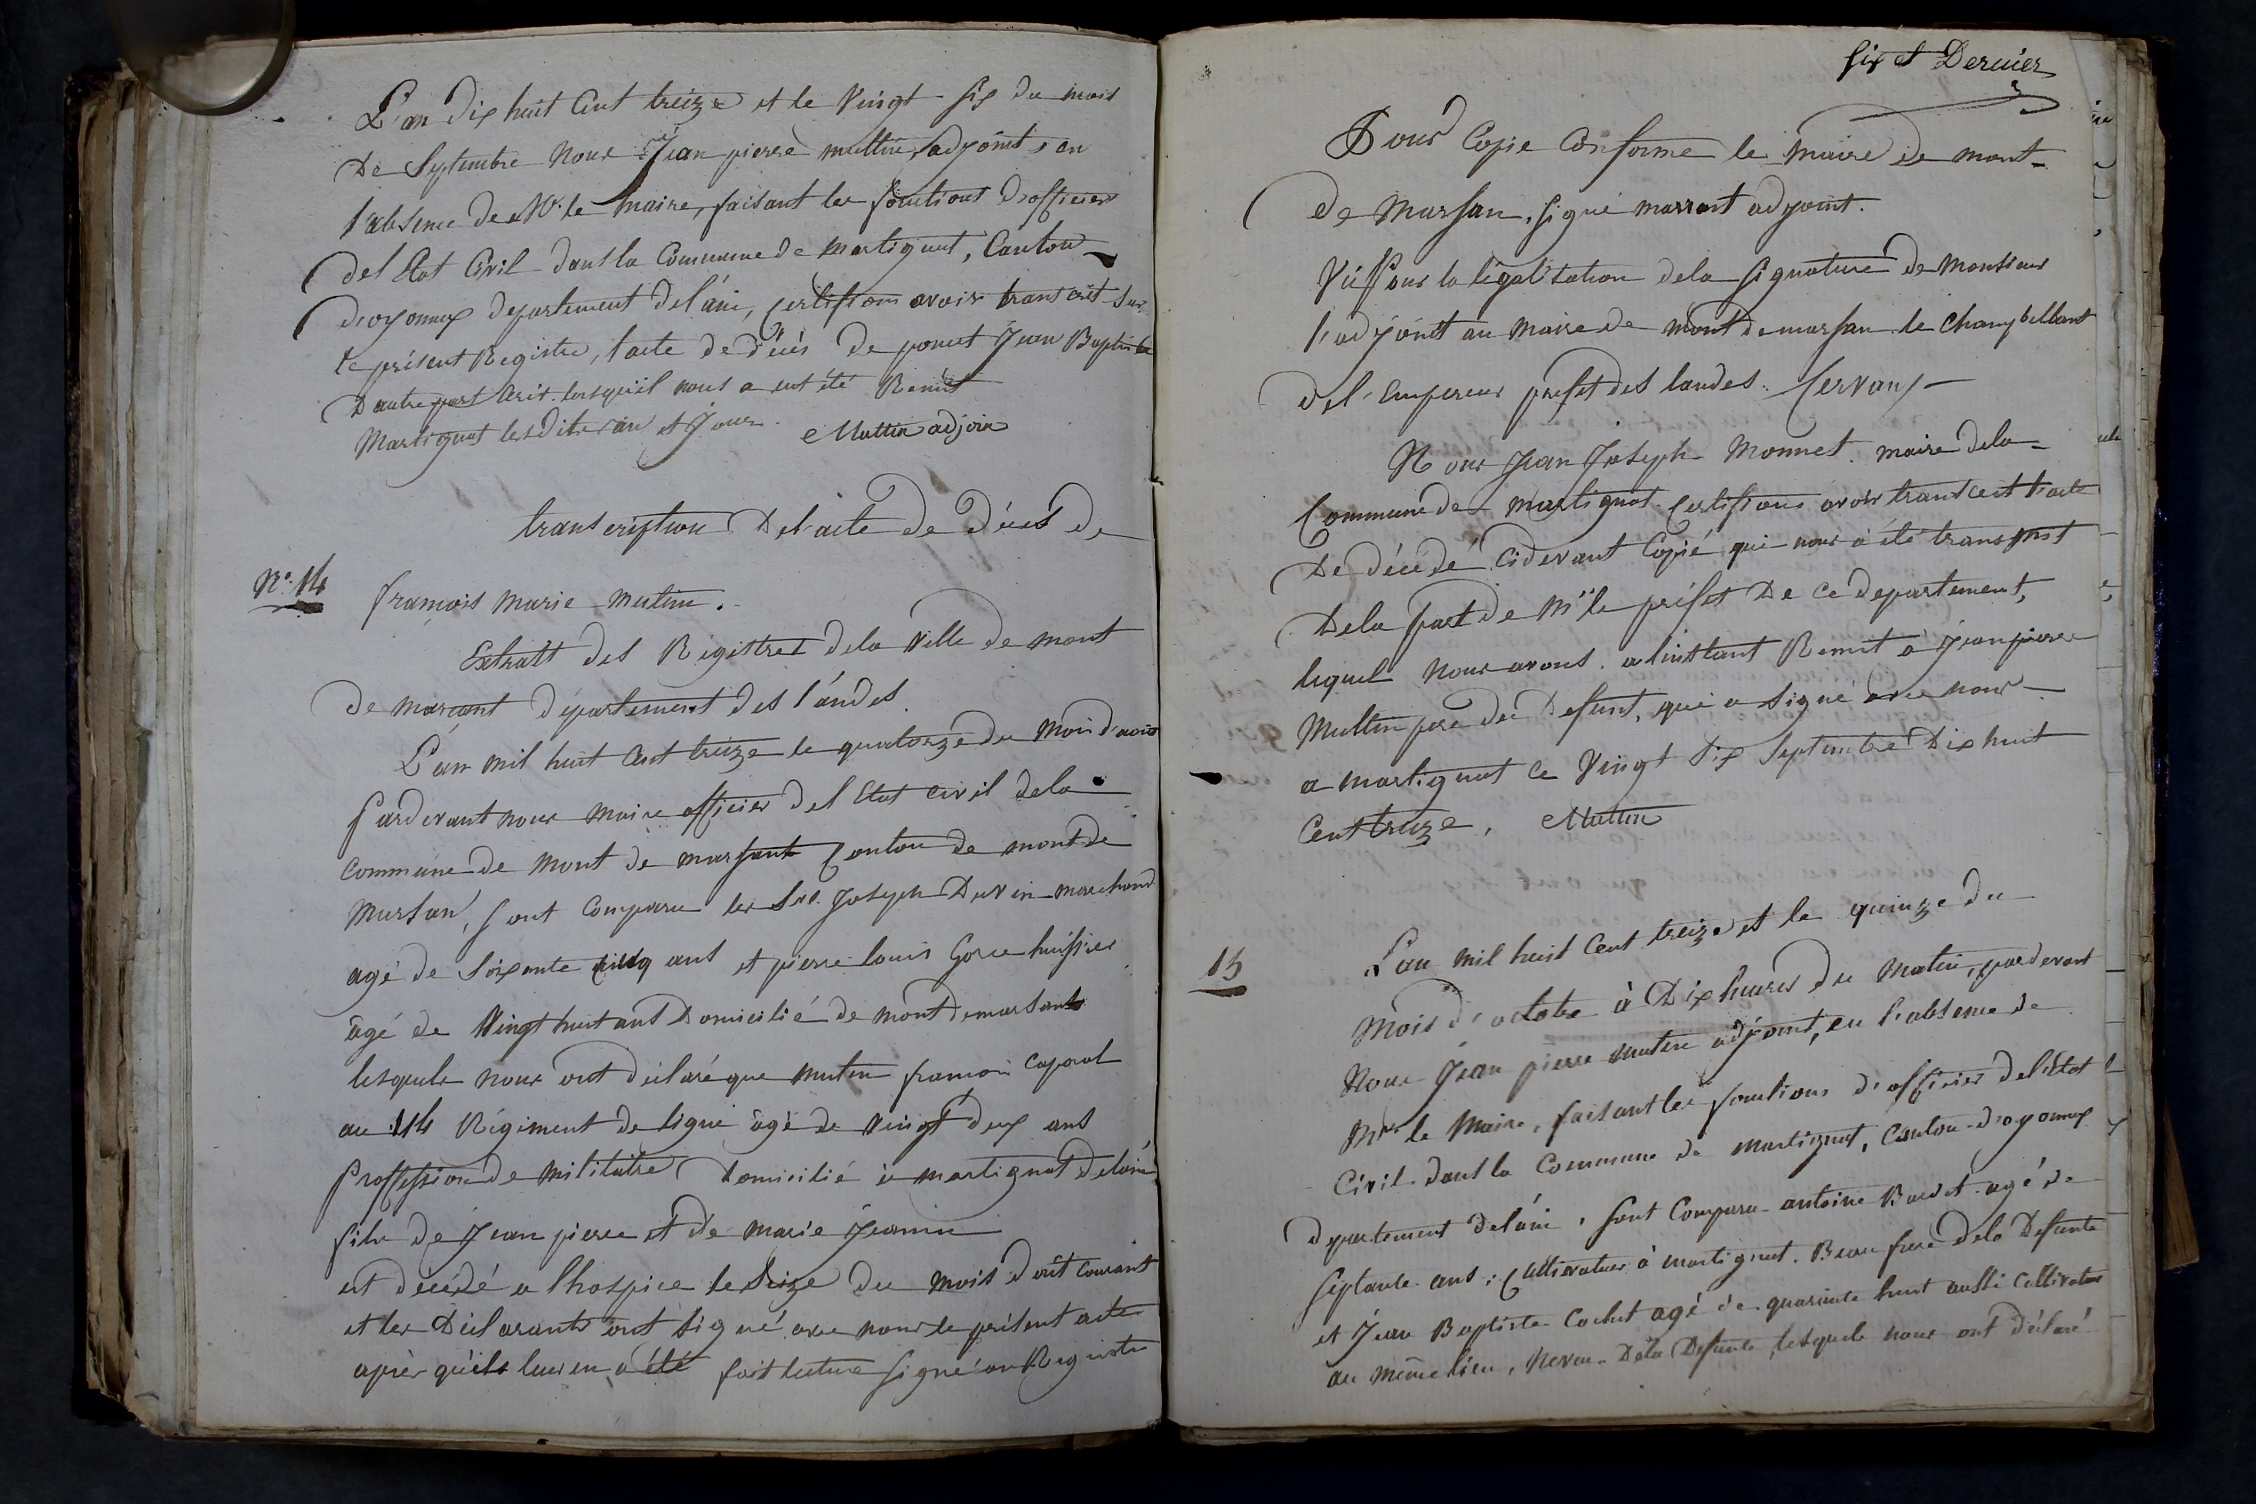 L'an dix huit Cent treize et le Vingt-six du mois
De Septembre Nous Jean pierre muttin, adjoint, en
l'absence de Mr. le Maire, faisant les fonctions D'officier
del Etat Civil dans la Commune de martignat, Canton
d'oyonnax departement del'ain, Certifions avoir transcrit sur
le présent Registre, l'acte de décès de poncet Jean Baptiste
D'autre part écrit lorsquil nous a eut été Remit
Martignat les dits an et Jour. Muttin adjoin
transcription Del'acte de décès de
N°. 14 françois marie Mutin.
Extratt des Régittres dela ville de mont
de marsant département des l'andes.
L'an mil huit Cent treize le quatorze du Mois d'aout
pardevant nous maire officier del Etat civil dela
commune de Mont de marsant Canton de mont de
Marsan, sont Comparu les Srs. Joseph Duvin marchand
agé de soixente cinq ans et pierre louis Gorce huissier
âgé de Vingt huit ans Domicilié de mont de marsant
lesquels nous ont déclaré que mutin françois caporal
au 114 Régiment de ligne âgé de vingt deux ans
proffession de militaire Domicilié à martignat del'ain
fils de Jean pierre et de marie Jeannin
est décédé a lhospice le seize du mois d'out courant
et les Déclarants ont signé avec nous le présent acte
après qu'ils leur en a été fait lecture signé au Registre
six et Dernier
Pour Copie Conforme le Maire de mont-
de Marsan, signé marrast adjoint.
Vu pour la légalisation dela signature de Monsieur
l'adjoint au Maire de mont de marsan. le Chambellant
del'empereur prefet des landes.
Nous Jean Joseph Monnet maire dela
Commune de Martignat Certifions avoir transcrit l'acte
De décédé cidevant Copié qui nous a été transmit
Dela part de Mr le préfet De ce departement,
lequel nous avons a linstant Remit a Jean pierre
Muttin pere du Defunt, qui a signé avec nous
a martignat ce Vingt Six Septembre Dix huit
Cent treize. Muttin
15 L'an mil huit Cent treize et le quinze du
Mois d'octobre à Dix heures du Matin, pardevant
Nous Jean pierre mutin adjoint, en l'absence de
Mr. le Maire, faisant les fonctions d'officier del'état
Civil dans la Commune de martignat, Canton d'oyonnax
departement del'ain, sont Comparu antoine Bardet agé de
septante ans, Cultivateur à martignat. Beau frere dela Defunte
et Jean Baptiste Cochet agé de quarante huit aussi Cultivateur
au même lieu, Neveu Dela Defunte, lesquels nous ont déclaré